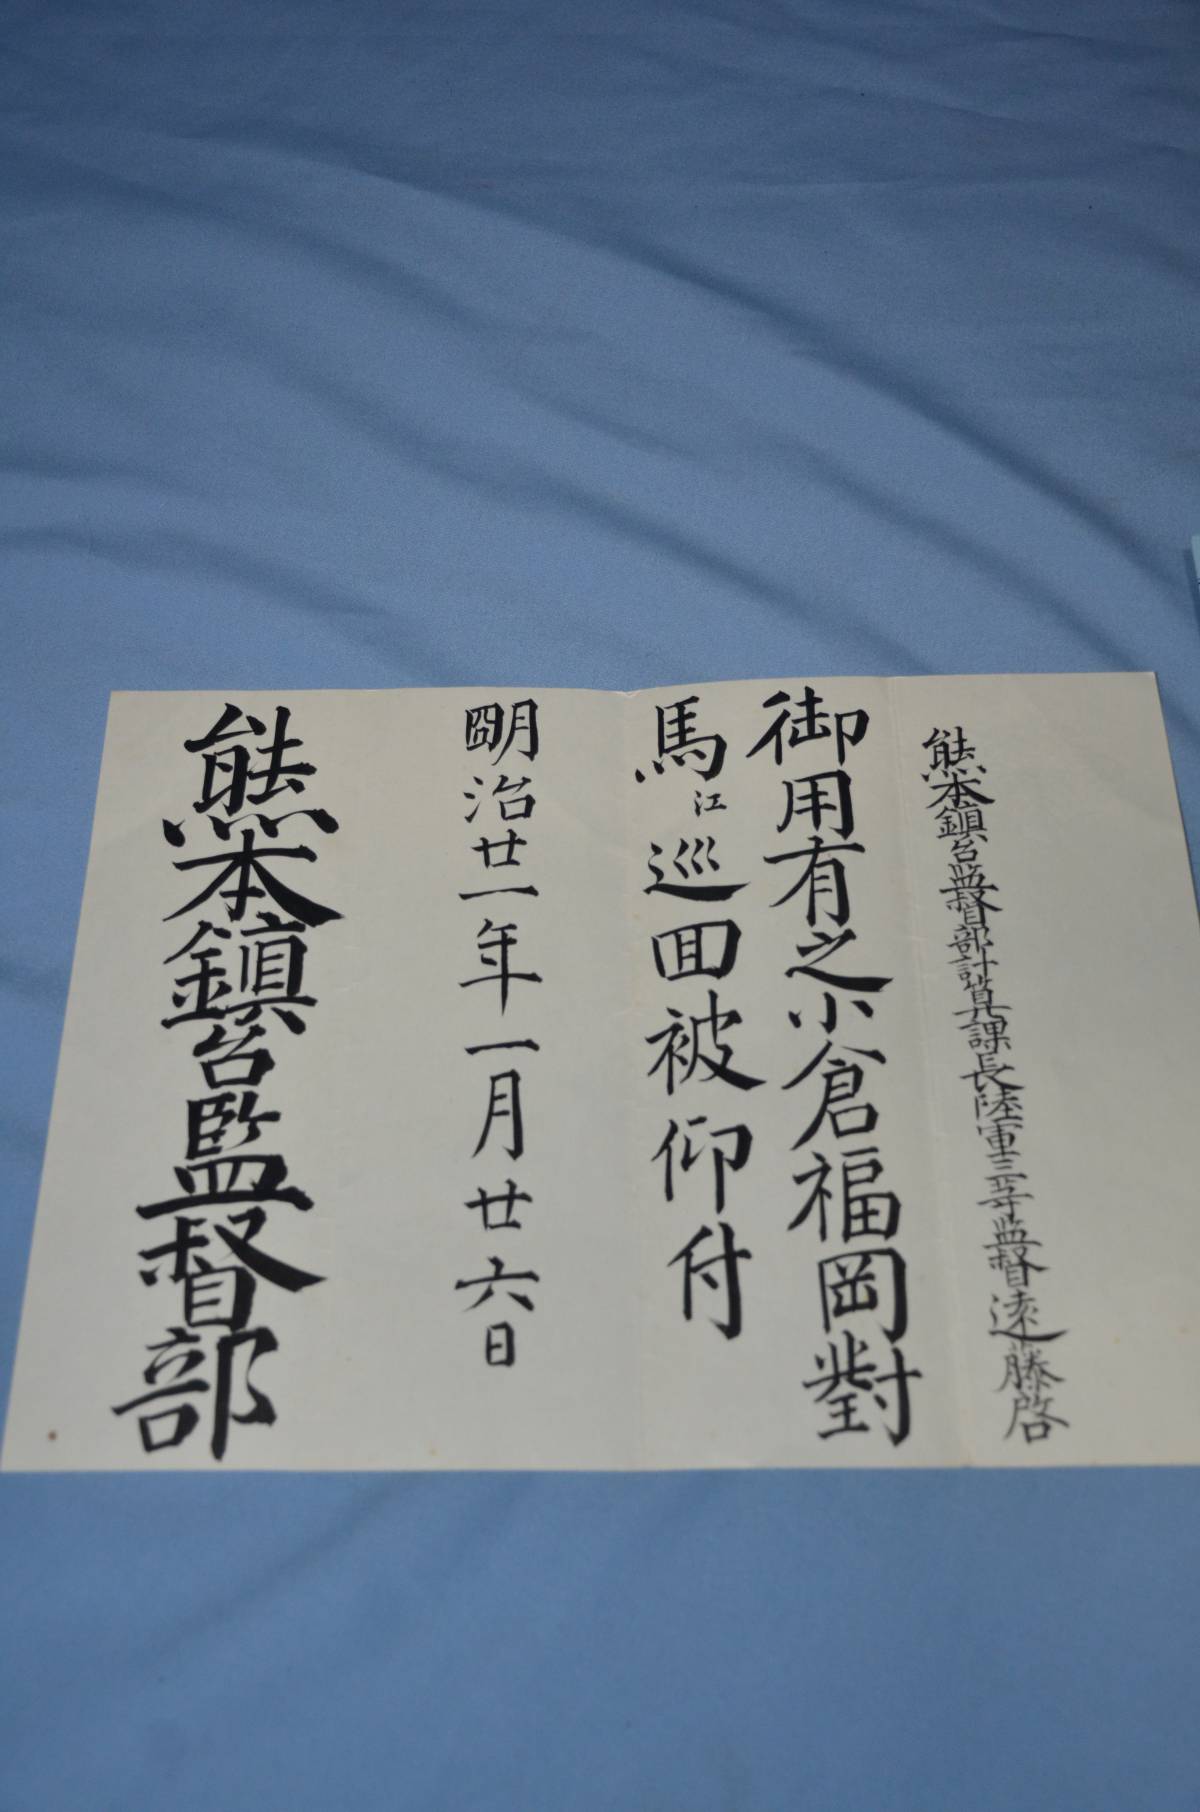 熊本鎮台監督部計算課長陸軍三等監督遠藤啓
御用有之小倉福岡對
馬江巡回被仰付
明治廿一年一月廿六日
熊本鎮台監督部